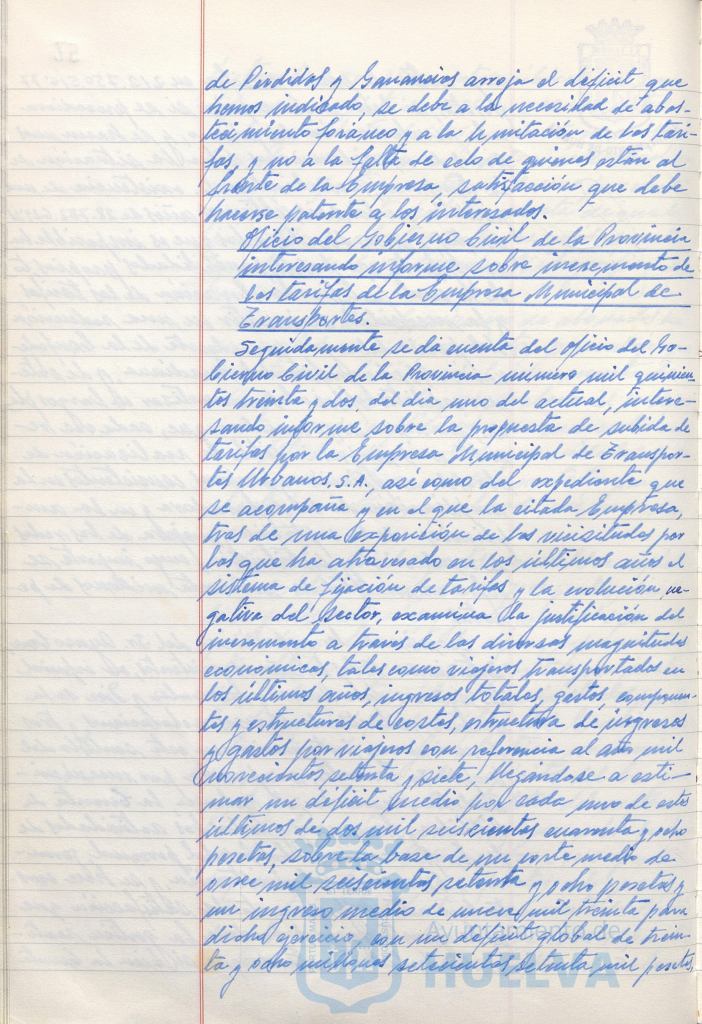 de Pérdidas y Ganancias arroja el déficit que
hemos indicado, se debe a la necesidad de abas-
tecimiento foráneo y a la limitación de las tari-
fas, y no a la falta de celo de quienes están al
frente de la Empresa, satisfacción que debe
hacerse patente a los interesados.
Oficio del Gobierno Civil de la Provincia
interesando informe sobre incremento de
las tarifas de la Empresa Municipal de
Transportes.
Seguidamente se da cuenta del oficio del Go-
bierno Civil de la Provincia número mil quinien-
tos treinta y dos, del dia uno del actual, intere-
sando informe sobre la propuesta de subida de
tarifas por la Empresa Municipal de Transpor-
tes Urbanos, S.A., así como del expediente que
se acompaña y en el que la citada Empresa,
tras de una exposición de las vicisitudes por
las que ha atravesado en los últimos años el
sistema de fijación de tarifas y la evolución ne-
gativa del sector, examina la justificación del
incremento a través de las diversas magnitudes
económicas, tales como viajeros transportados en
los últimos años, ingresos totales, gastos, componen-
tes y estructuras de costes, estructura de ingresos
y gastos por viajeros con referencia al año mil
novecientos setenta y siete, llegándose a esti-
mar un déficit medio por cada uno de estos
últimos de dos mil seiscientos cuarenta y ocho
pesetas, sobre la base de un coste medio de
once mil seiscientos setenta y ocho pesetas y
un ingreso medio de nueve mil treinta para
dicho ejercicio, con un déficit global de trein-
ta y ocho millones setecientos setenta mil pesetas
Ayuntamiento de
HUELVA